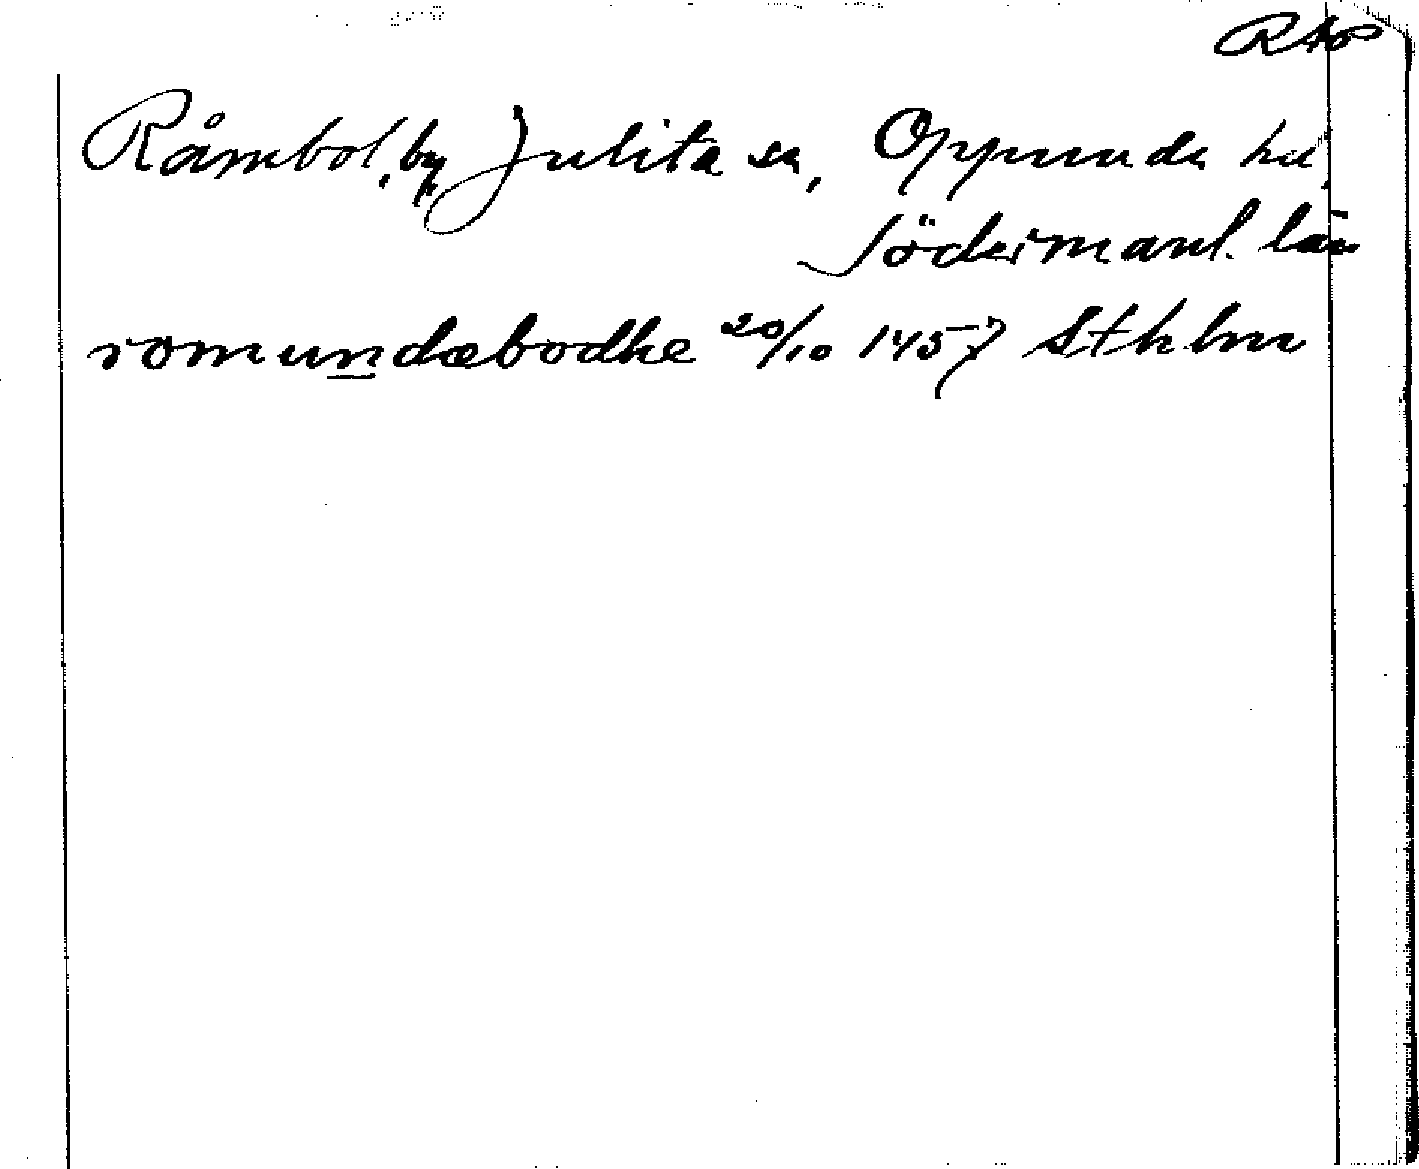 RAP
Råmbol, by Julita sn, Oppunda hd,
Södermanl. län
romundæbodhe 20/10 1457 Sthlm